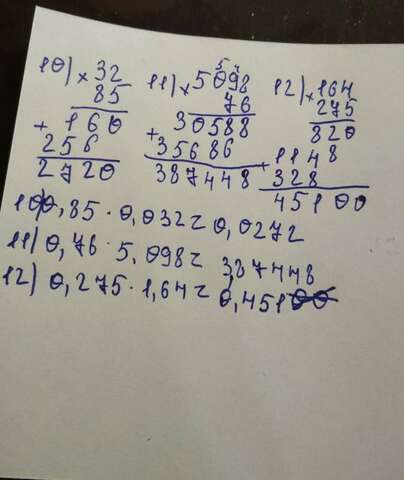 10) × 32
85
+ 160
256
2720
11) × 5098
76
30588
+ 35686
387448
12) × 164
275
820
+ 1148
328
45100
10) 0,85 · 0,032 = 0,0272
11) 0,76 · 5,098 = 387448
12) 0,275 · 1,64 = 0,451